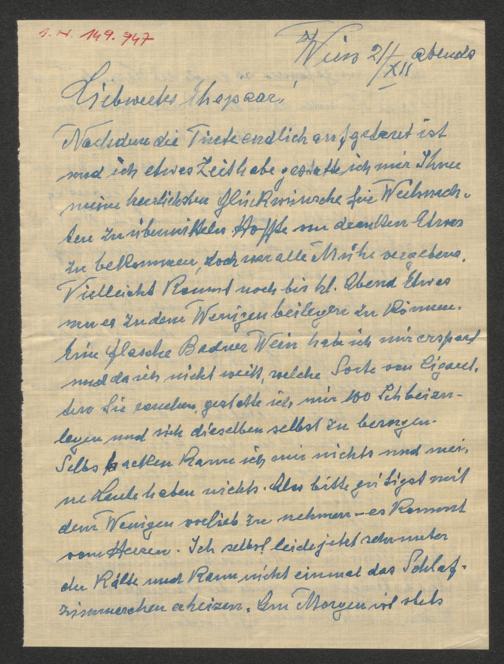 I. N. 149.947
Wien 21/XII abends
Liebwertes Ehepaar!
Nachdem die Tinte endlich aufgetaut ist
und ich etwas Zeit habe gestatte ich mir Ihnen
meine herzlichsten Glückwünsche für Weihnach-
ten zu übermitteln. Hoffte von draußen Etwas
zu bekommen, doch war alle Mühe vergebens.
Vielleicht kommt noch bis hl. Abend Etwas
um es zu dem Wenigen beilegen zu können.
Eine Flasche Badner Wein hab ich mir erspart
und da ich nicht weiß, welche Sorte von Cigaret-
ten Sie rauchen, gestatte ich mir 100 Sch beizu-
legen und sich dieselben selbst zu besorgen.
Selbst backen kann ich mir nichts und mei-
ne Leute haben nichts. Also bitte gütigst mit
dem Wenigen vorlieb zu nehmen – es kommt
vom Herzen. Ich selbst leide jetzt sehr unter
der Kälte und kann nicht einmal das Schlaf-
zimmerchen erheizen. Am Morgen ist stets